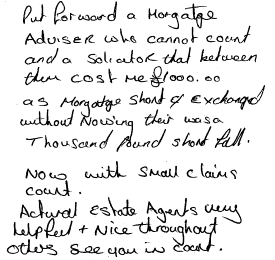 Put forward a Morgatge
Adviser who cannot count
and a Solicator that between
them cost me £1000.00
as Morgatge short & Exchanged
without Nowing their was a
Thousand pound short fall.
Now with small claims
court.
Actural Estate Agents very
helpfeel + Nice throughout
others see you in court.